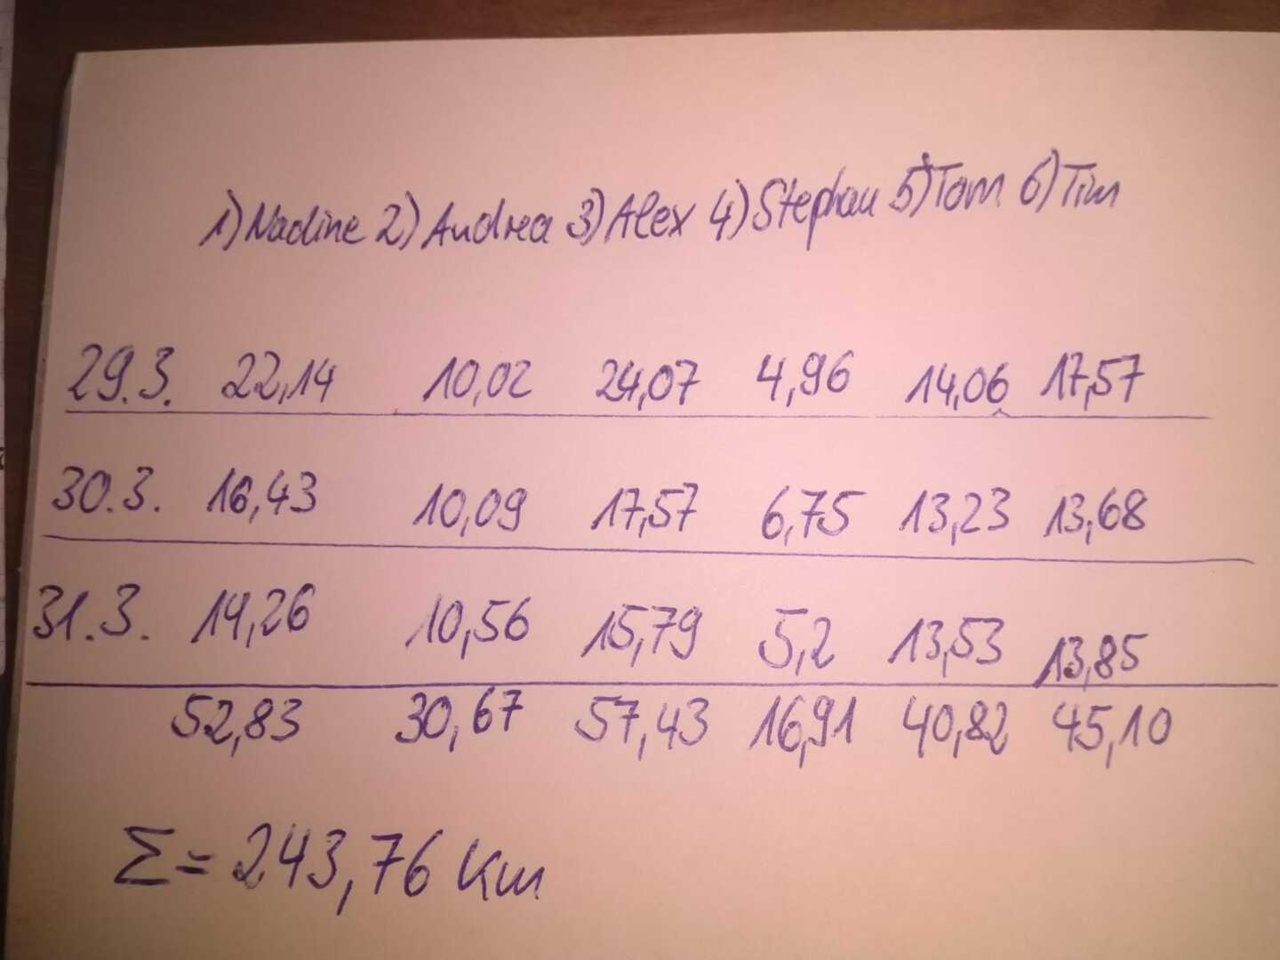 1) Nadine 2) Andrea 3) Alex 4) Stephan 5) Tom 6) Tim
29.3. 22,14 10,02 24,07 4,96 14,06 17,57
30.3. 16,43 10,09 17,57 6,75 13,23 13,68
31.3. 14,26 10,56 15,79 5,2 13,53 13,85
52,83 30,67 57,43 16,91 40,82 45,10
Σ = 243,76 Km